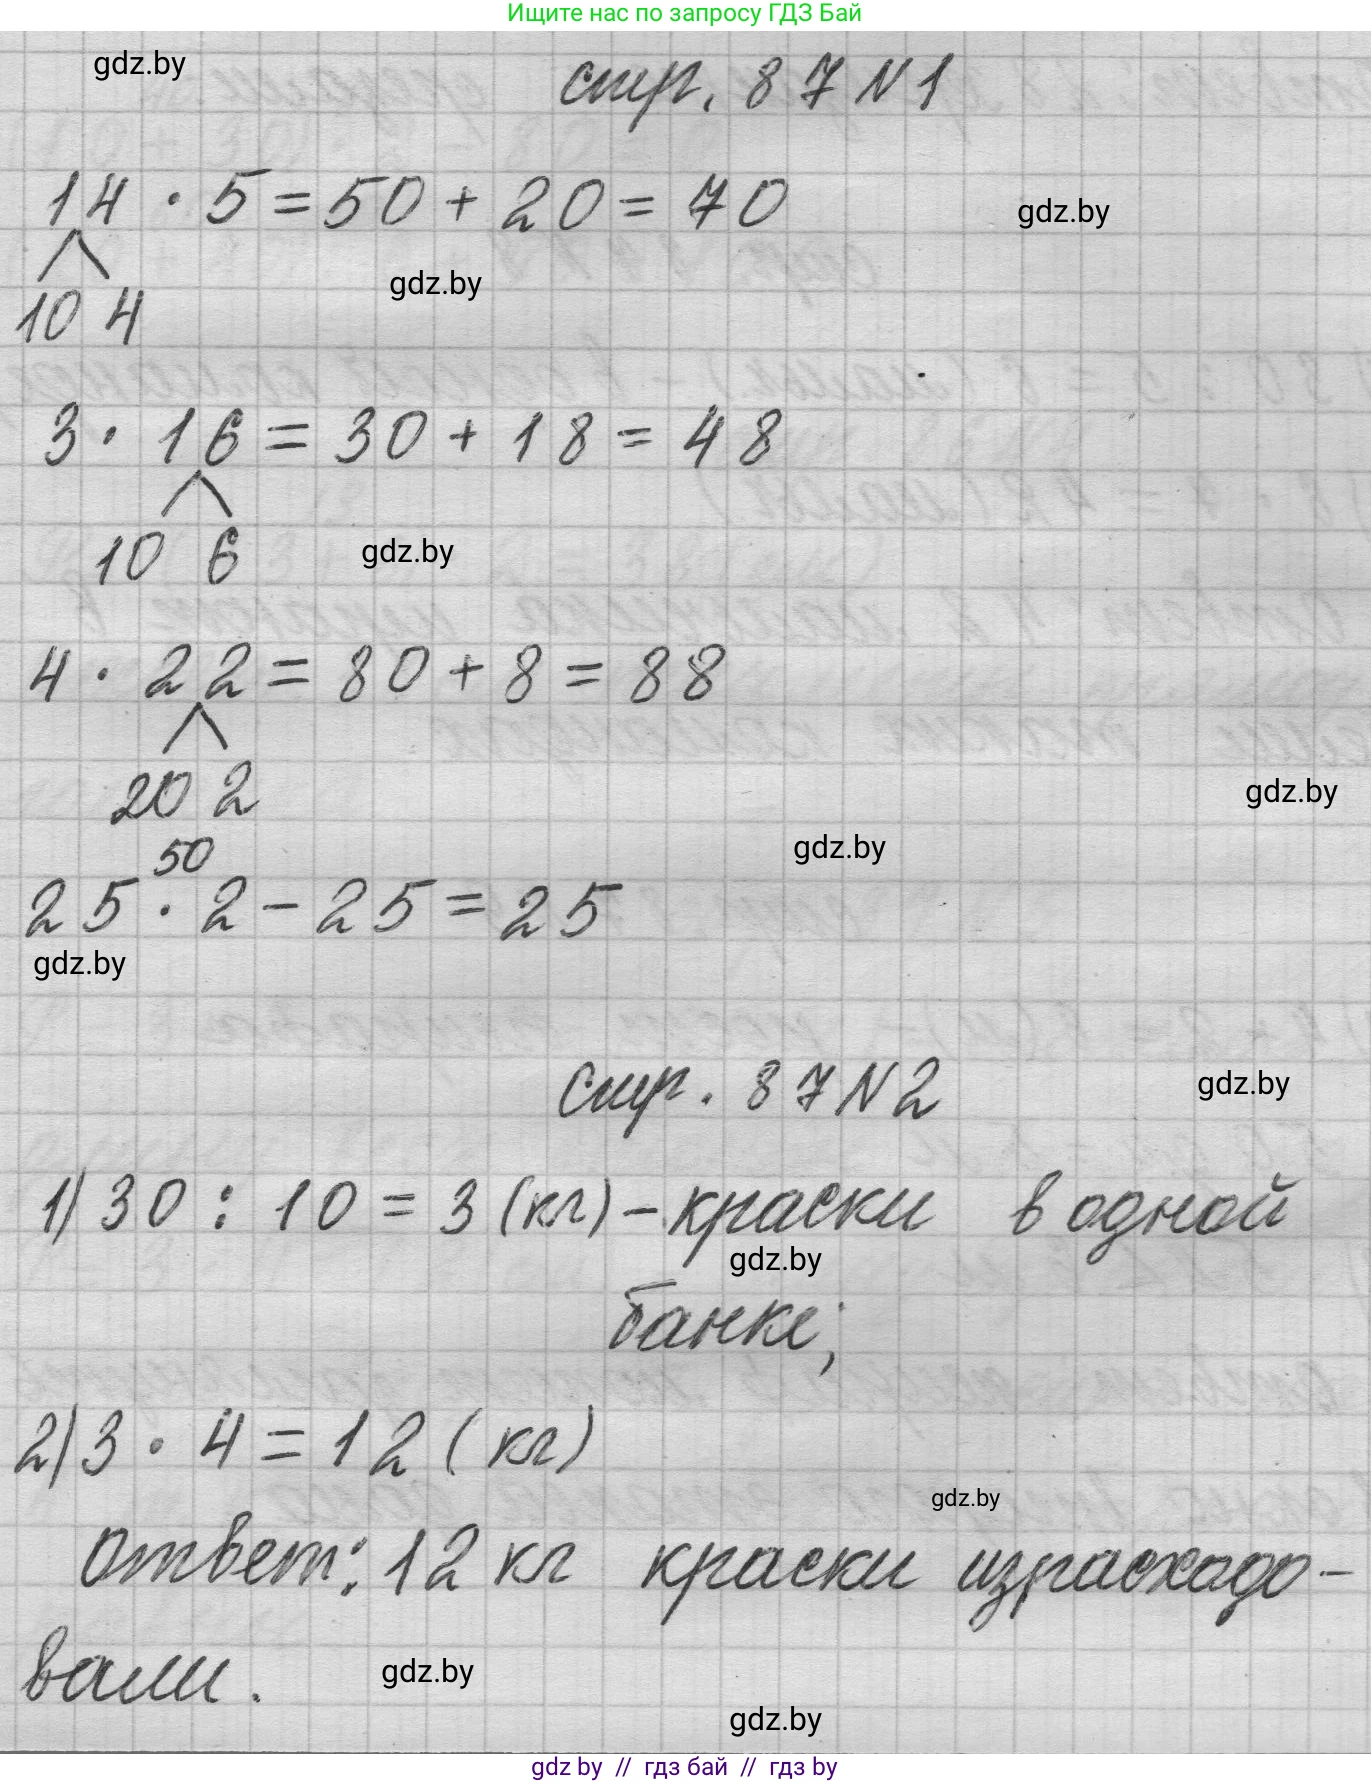 Ищите нас по запросу ГДЗ Бай
gdz.by
стр. 87 N 1
14 · 5 = 50 + 20 = 70
gdz.by
10 4
gdz.by
3 · 16 = 30 + 18 = 48
10 6
gdz.by
4 · 22 = 80 + 8 = 88
20 2
gdz.by
50
gdz.by
25 · 2 - 25 = 25
gdz.by
стр. 87 N 2
gdz.by
1) 30 : 10 = 3 (кг) - краски в одной
gdz.by
банке;
2) 3 · 4 = 12 (кг)
gdz.by
ответ: 12 кг краски израсходо-
вали.
gdz.by
gdz.by
gdz by // гдз бай // гдз by